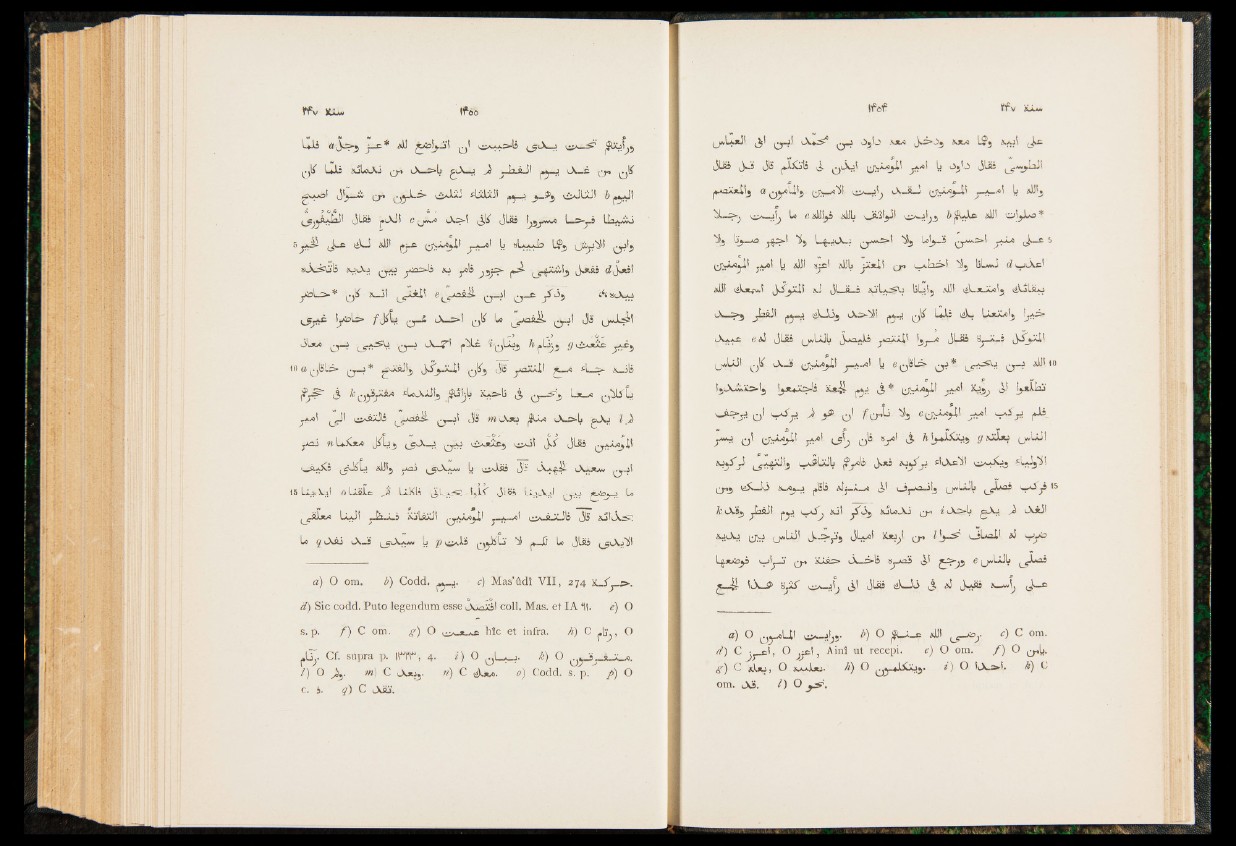 سنة ٢٤٧ ١٤٥٤
على ابيه وعمّا معه ودخل معه داود بن محمّد بن ابى العبّاس
الطوسىّ فقال داود يا امير المؤمنين ايذن لى فاتكلّم قال قل فقال
والله يا امير المؤمنين لقد رايت الامين والمأمون a والمعتصم
*صلوات الله عليهم b ورايت الواثق بالله فوالله c ما رايت رجلا
5 على منبر احسن قواما ولا احسن بديها ولا اجهر صوتا ولا
اعذب d لسانا ولا اخطب من المعتزّ بالله اعزّه الله يا امير المؤمنين
ببقائك وامتعك الله وايّانا بحياته فقال له المتوكّل اسمعك الله
خيرا وامتعنا بك فلمّا كان يوم الاحد وذلك يوم الفطر وجد
المتوكّل فترة فقال مروا المنتصر فليصلّ بالناس فقال له e عبيد
10 الله بن يحيى *بن خاقان e يا امير المؤمنين قد كان الناس
تطلّعوا الى رؤية امير المؤمنين *فى يوم الجمعة فاجتمعوا واحتشدوا
فلم يركب امير المؤمنين e ولا نأمن f ان هو لم يركب ان يرجف
الناس بعلّته g ويتكلّموا h فى امره فان رأى امير المؤمنين ان يسرّ
الاولياء ويكبت الاعداء بركوبه فعل فامرهم بالتأهّب والتهيّئ لركوبه
15 فركب فصلّى بالناس وانصرف الى منزله فاقام يومه ذلك ومن
الغد لم يدع باحد i من ندمائه وذكر انّه ركب يوم الفطر وقد k
ضرب له المصافّ نحوا l من اربعة اميال وترجّل الناس بين يديه
فصلّى بالناس e ورجع الى قصره فاخذ حفنة من تراب فوضعها
على رأسه فقيل له فى ذلك فقال انّى رأيت كثرة هذا الجمع
a) O ورايت المامون. b) O رضى الله عنهم. c) C om.
d) C اعزر, O اغزر, Ainî ut recepi. e) O om. f) O يامن.
g) C بعله, O بعلته. h) O ويتكلمون. i) O احدا. k) C
om. قد. l) O نحو.
١٤٥٥ سنة ٢٤٧
ورأيتهم تحت يدى فاحببت ان اتواضع لله *عزّ وجلّ a فلمّا
كان من غد يوم الفطر لم يدع باحد من ندمائه فلمّا كان
اليوم b الثالث وهو يوم الثلثاء لثلث خلون من شوّال اصبح
نشيطا فرحا مسرورا فقال كأنّى اجد مسّ c الدم فقال الطيفورىّ
5 وابن الابرش وهما طبيباه يا امير المؤمنين عزم الله لك على الخير
افعل d ففعل واشتهى لحم جزور فامر به فاحضر بين يديه فاتّخذه
بيده وذكر عن ابن الحفصىّ e المغنّى انّه كان *حاضر
المجلس قال ابن الحفصىّ ما كان احد ممّن يأكل f حاضرا غيرى
وغير عثعث g وزنام h وبنان i غلام احمد بن يحيى بن معاذ
10 فانّه جاء مع المنتصر قال وكان المتوكّل والفتح *بن خاقان a
يأكلان معا ونحن فى ناحية بازائهم والندماء مفترقون k فى حجرهم
لم l يدع باحد منهم بعد m قال ابن الحفصىّ فالتفت الىّ امير
المؤمنين فقال كل انت وعثعث بين يدىّ ويأكل معكما n نصر
ابن سعيد الجهبذ قال فقلت يا سيّدى نصر والله يأكلنى فكيف
15 ما يوضع بين ايدينا فقال كلوا بحياتى فاكلنا ثم علّقنا o ايدينا
بحذائه قال فالتفت امير المؤمنين التفاتة فنظر الينا معلّقى
الايدى فقال ما لكم لا تأكلون قلت p يا سيّدى قد نفد q ما
a) O om. b) Codd. يوم. c) Mas'ûdî VII, 274 حركة.
d) Sic codd. Puto legendum esse افتصد coll. Mas. et IA ٦١. e) O
s. p. f) C om. g) O hîc et infra. h) C رنام, O
زنام. Cf. supra p. ١٣٣٣, 4. i) O k) O متفرقون.
l) O ولم. m) C وبعد. n) C معك. o) Codd. s. p. p) O
c. ف. q) C نفذ.